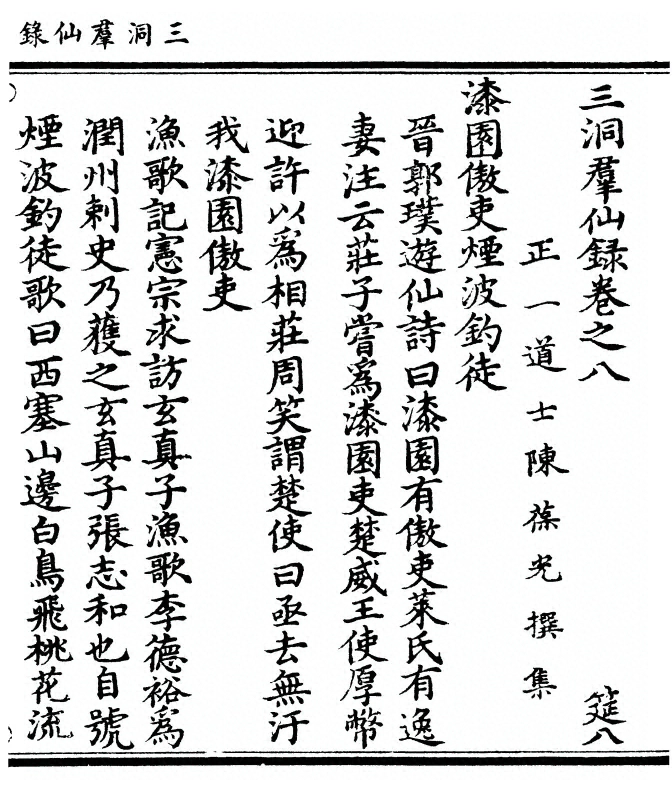 三洞羣仙録
三洞羣仙録卷之八
筵八
正一道士陳葆光撰集
漆園傲吏煙波釣徒
晉郭璞遊仙詩曰漆園有傲吏萊氏有逸
妻注云莊子嘗爲漆園吏楚威王使厚幣
迎許以爲相莊周笑謂楚使曰亟去無汙
我漆園傲吏
漁歌記憲宗求訪玄真子漁歌李德裕爲
潤州刺史乃獲之玄真子張志和也自號
煙波釣徒歌曰西塞山邊白鳥飛桃花流